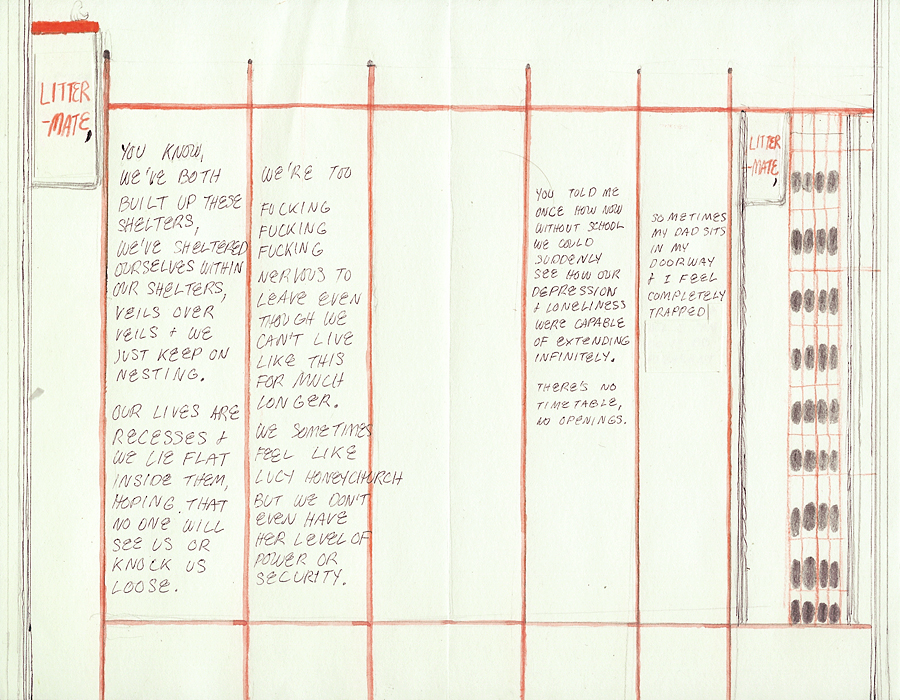 LITTER
-MATE,
YOU KNOW,
WE'VE BOTH
BUILT UP THESE
SHELTERS,
WE'VE SHELTERED
OURSELVES WITHIN
OUR SHELTERS,
VEILS OVER
VEILS + WE
JUST KEEP ON
NESTING.
OUR LIVES ARE
RECESSES +
WE LIE FLAT
INSIDE THEM,
HOPING THAT
NO ONE WILL
SEE US OR
KNOCK US
LOOSE.
WE'RE TOO
FUCKING
FUCKING
FUCKING
NERVOUS TO
LEAVE EVEN
THOUGH WE
CAN'T LIVE
LIKE THIS
FOR MUCH
LONGER.
WE SOMETIMES
FEEL LIKE
LUCY HONEYCHURCH
BUT WE DON'T
EVEN HAVE
HER LEVEL OF
POWER OR
SECURITY.
YOU TOLD ME
ONCE HOW NOW
WITHOUT SCHOOL
WE COULD
SUDDENLY
SEE HOW OUR
DEPRESSION
+ LONELINESS
WERE CAPABLE
OF EXTENDING
INFINITELY.
THERE'S NO
TIMETABLE,
NO OPENINGS.
SOMETIMES
MY DAD SITS
IN MY
DOORWAY
+ I FEEL
COMPLETELY
TRAPPED
LITTER
-MATE,